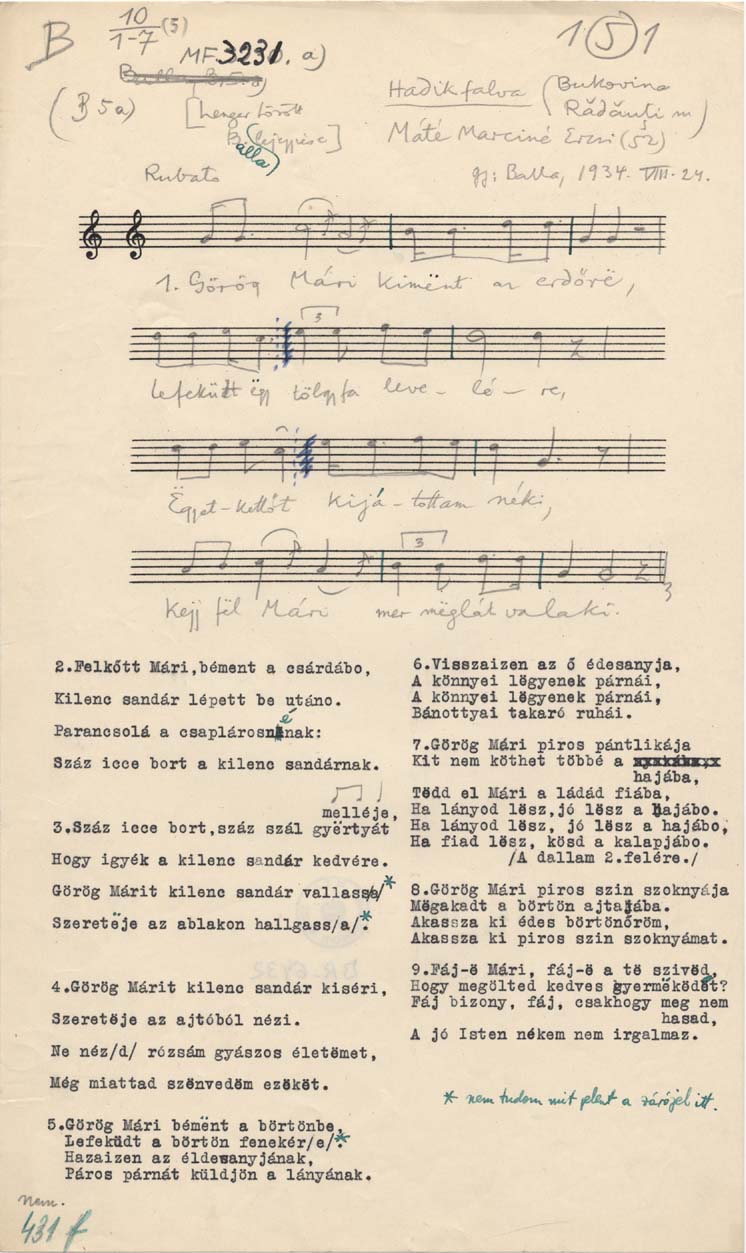 B 10/1-7 (5)
MF 3231. a)
1 5 1
(B 5a)
[henger törött
Balla lejegyzése]
Hadikfalva (Bukovina
Rădăuti m)
Máté Marciné Erzsi (52)
gy: Balla, 1934. VIII. 24.
Rubato
1. Görög Mári kimënt az erdőrë,
3
lefeküdt ëgy tölgyfa leve - lé - re,
Ëgyet-kettőt kijá-tottam néki,
3
Kejj fël Mári mer mëglát valaki.
2.Felkőtt Mári,bément a csárdábo,
Kilenc sandár lépett be utáno.
é
Parancsolá a csaplárosnénak:
Száz icce bort a kilenc sandárnak.
melléje,
3.Száz icce bort,száz szál gyërtyát
Hogy igyék a kilenc sandár kedvére.
Görög Márit kilenc sandár vallassa/*
Szeretëje az ablakon hallgass/a/.*
4.Görög Márit kilenc sandár kiséri,
Szeretëje az ajtóból nézi.
Ne néz/d/ rózsám gyászos életëmet,
Még miattad szënvedëm ezëkët.
5.Görög Mári bémënt a börtönbe,
Lefeküdt a börtön fenekér/e/.*
Hazaizen az éldesanyjának,
Páros párnát küldjön a lányának.
6.Visszaizen az ő édesanyja,
A könnyei lëgyenek párnái,
A könnyei lëgyenek párnái,
Bánottyai takaró ruhái.
7.Görög Mári piros pántlikája
Kit nem köthet többé a
hajába,
Tëdd el Mári a ládád fiába,
Ha lányod lësz,jó lësz a hajábo.
Ha lányod lësz, jó lësz a hajábo,
Ha fiad lësz, kösd a kalapjábo.
/A dallam 2.felére./
8.Görög Mári piros szin szoknyája
Mëgakadt a börtön ajtajába.
Akassza ki édes börtönőröm,
Akassza ki piros szin szoknyámat.
9.Fáj-ë Mári, fáj-ë a të szivëd,
Hogy megölted kedves gyermëködet?
Fáj bizony, fáj, csakhogy meg nem
hasad,
A jó Isten nékem nem irgalmaz.
* nem tudom mit jelent a zárójel itt.
nem.
431 f